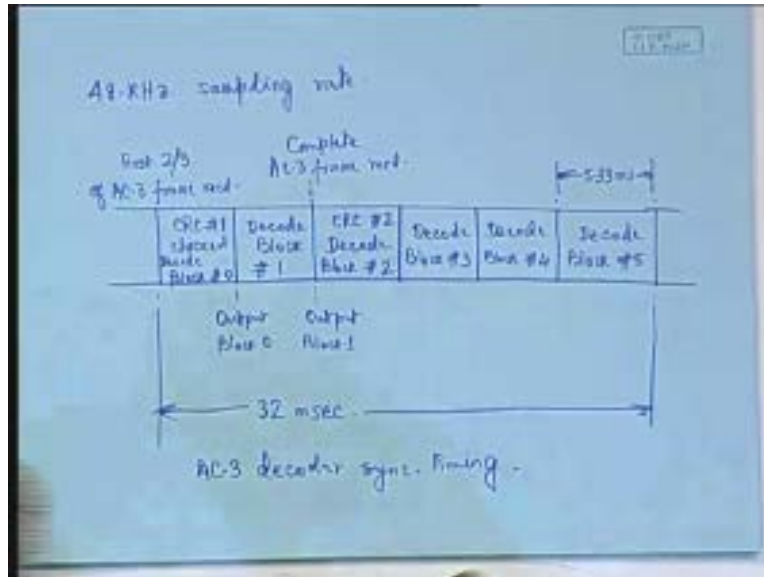 48-KHz sampling rate
First 2/3
of AC-3 frame recd.
Complete
AC-3 frame recd.
5.33 ms
CRC #1
checked
Decode
Block #0
Decode
Block
#1
CRC #2
Decode
Block #2
Decode
Block #3
Decode
Block #4
Decode
Block #5
Output
Block 0
Output
Block 1
32 msec.
AC-3 decoder sync. timing.